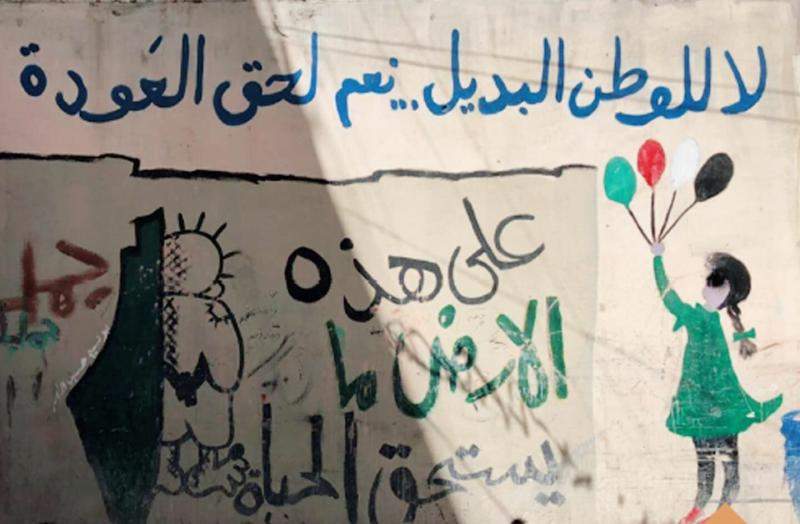 لا للوطن البديل..نعم لحق العَودة
على هذه
الارض ما
يستحق الحياة